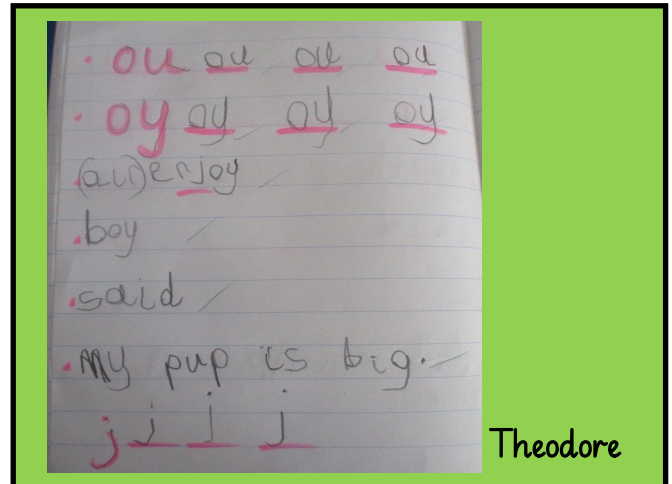 · ou ou ou ou
· oy oy oy oy
(au) enjoy
boy
said
My pup is big.
j j j j
Theodore